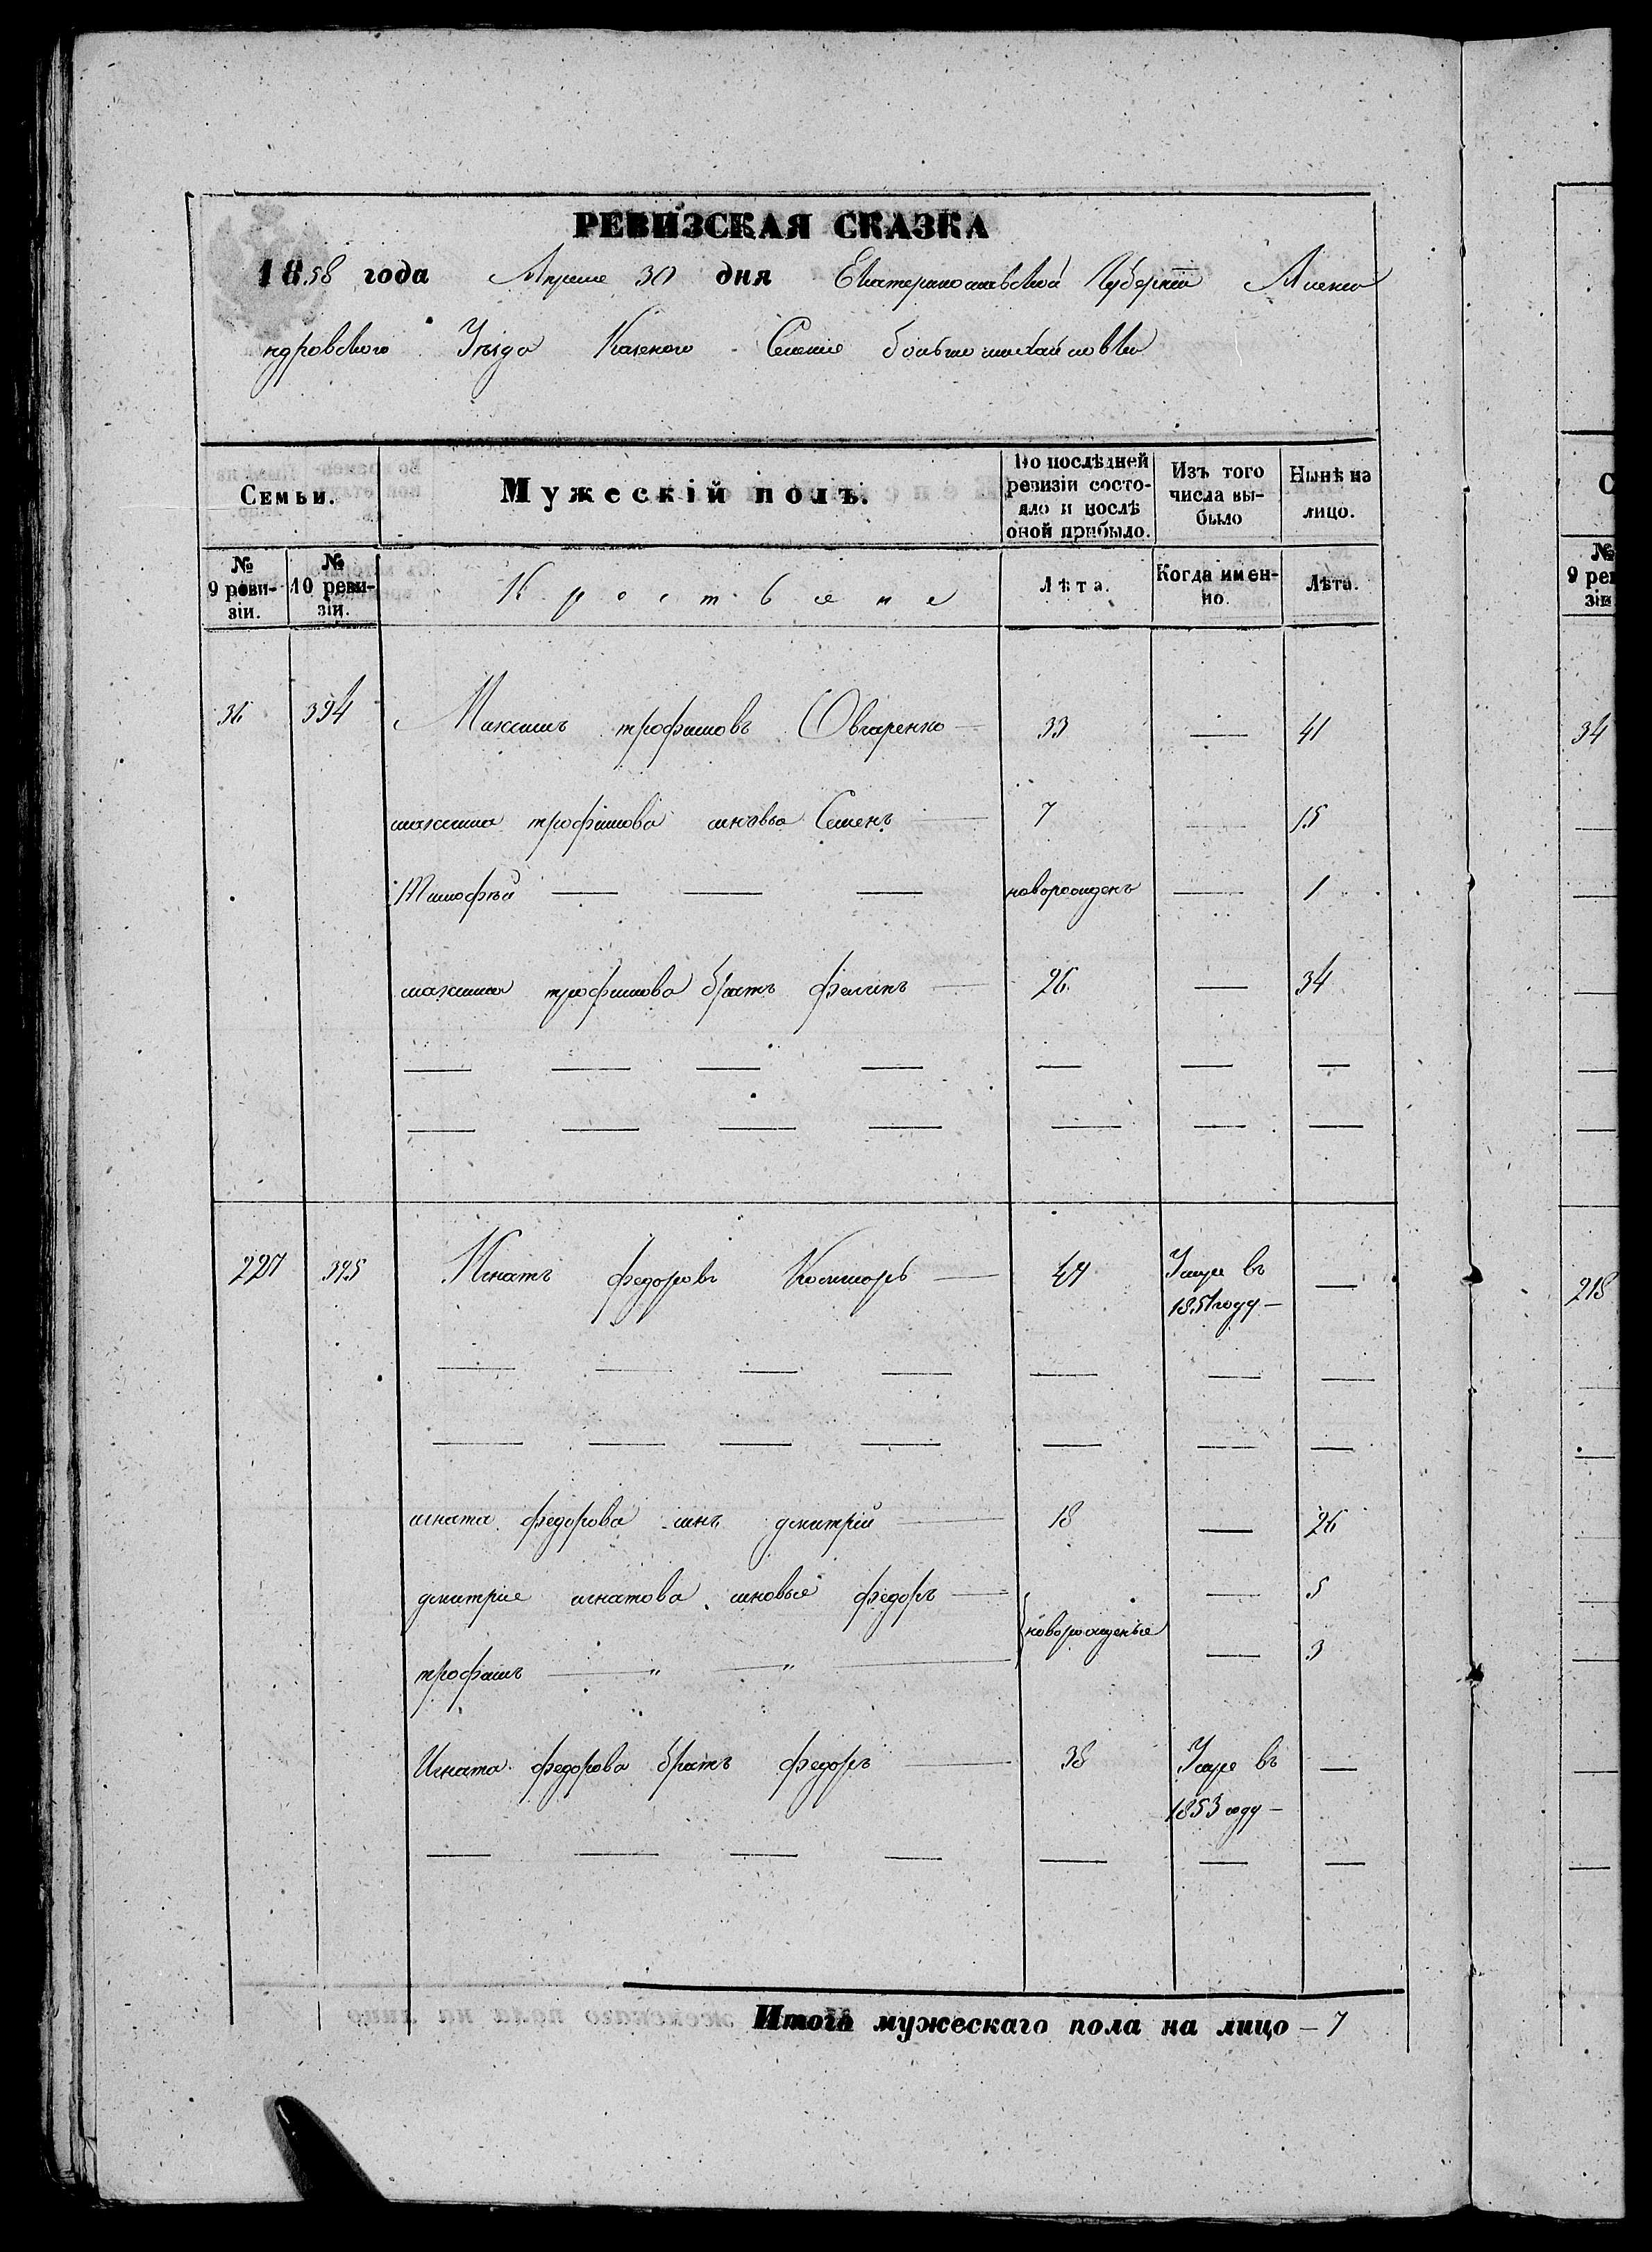 РЕВИЗСКАЯ СКАЗКА
1858 года Апреля 30 дня Екатеринославской Губернiи Алекса
ндровского Уѣзда Казеного Селенiя большемихайловки
Семьи.
Мужескiй полъ.
По послѣдней ревизiи состояло и послѣ оной прибыло.
Изъ того числа выбыло
Нынѣ на лицо.
№ 9 ревизiи.
№ 10 ревизiи.
Крестьяне
Лѣта.
Когда именно.
Лѣта.
36 394 Максимъ трофимовъ Овчаренко — 33 — 41
максима трофимова сновья Семенъ — 7 — 15
Тимофѣй — — — новорожденъ — 1
максима трофимова братъ филипъ — 26 — 34
227 395 Игнатъ федоровъ — Умре въ —
1851 году —
игната федорова синъ дмитрiй — 18 — 26
дмитрiя игнатова сновья федоръ — — 5
новорожденые
трофимъ — " — " — — 3
Игната федорова братъ федоръ — 38 Умре въ —
1853 году —
Итого мужескаго пола на лицо — 7
С
№
9 реви
зiи
34
218